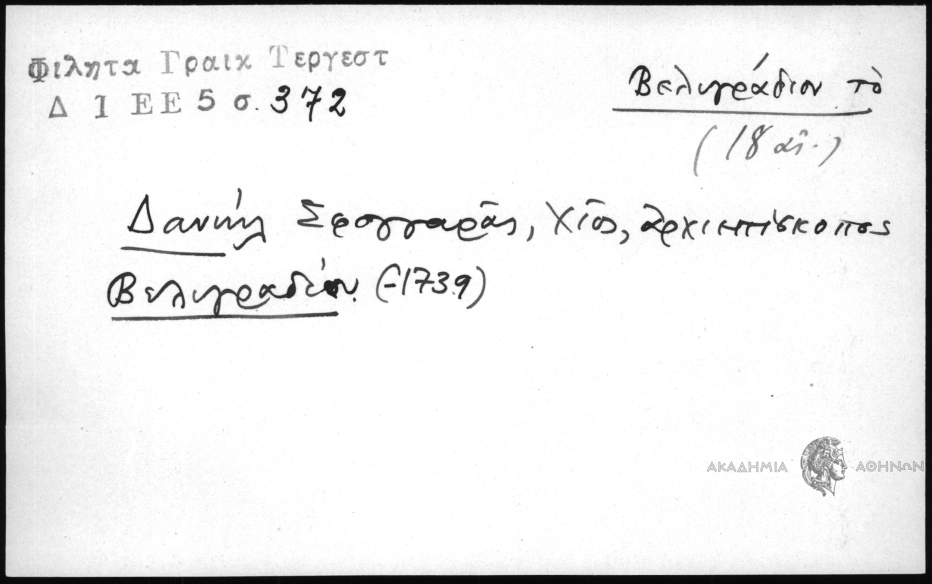 Φιλητα Γραικ Τεργεστ
Δ Ι ΕΕ 5 σ. 372
Βελιγράδιον τὸ
(18 αἰ.)
Δανιήλ Σφογγαρᾶς, Χῖος, ἀρχιεπίσκοπος
Βελιγραδίου (-1739)
ΑΚΑΔΗΜΙΑ ΑΘΗΝΩΝ